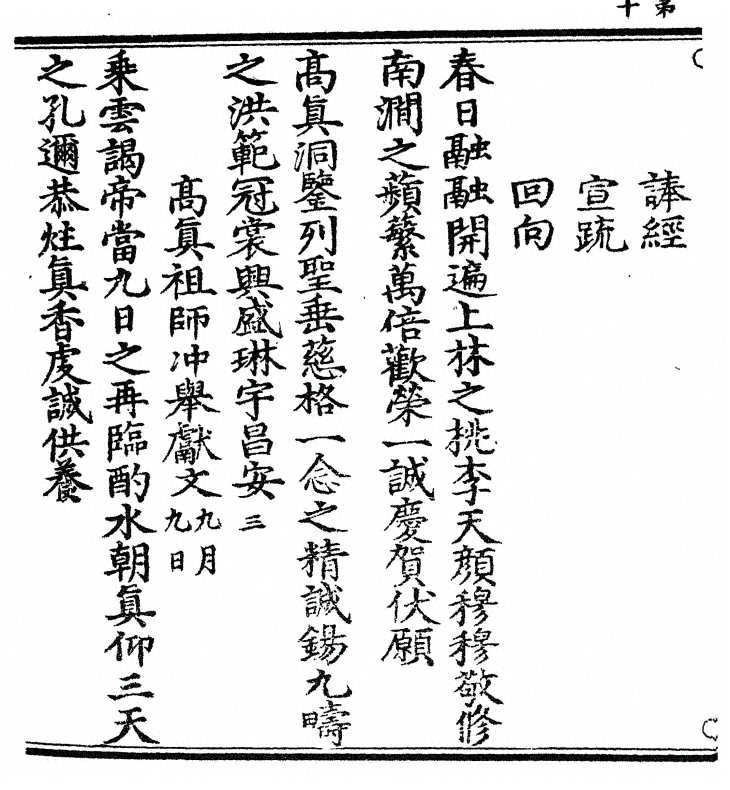 第
十
諷經
宣疏
回向
春日融融開遍上林之桃李天顔穆穆敬修
南澗之蘋蘩萬倍歡榮一誠慶賀伏願
高眞洞鑒列聖垂慈格一念之精誠錫九疇
之洪範冠裳興盛琳宇昌安三
高眞祖師冲舉獻文九月
九日
乘雲謁帝當九日之再臨酌水朝眞仰三天
之孔邇恭炷眞香虔誠供養